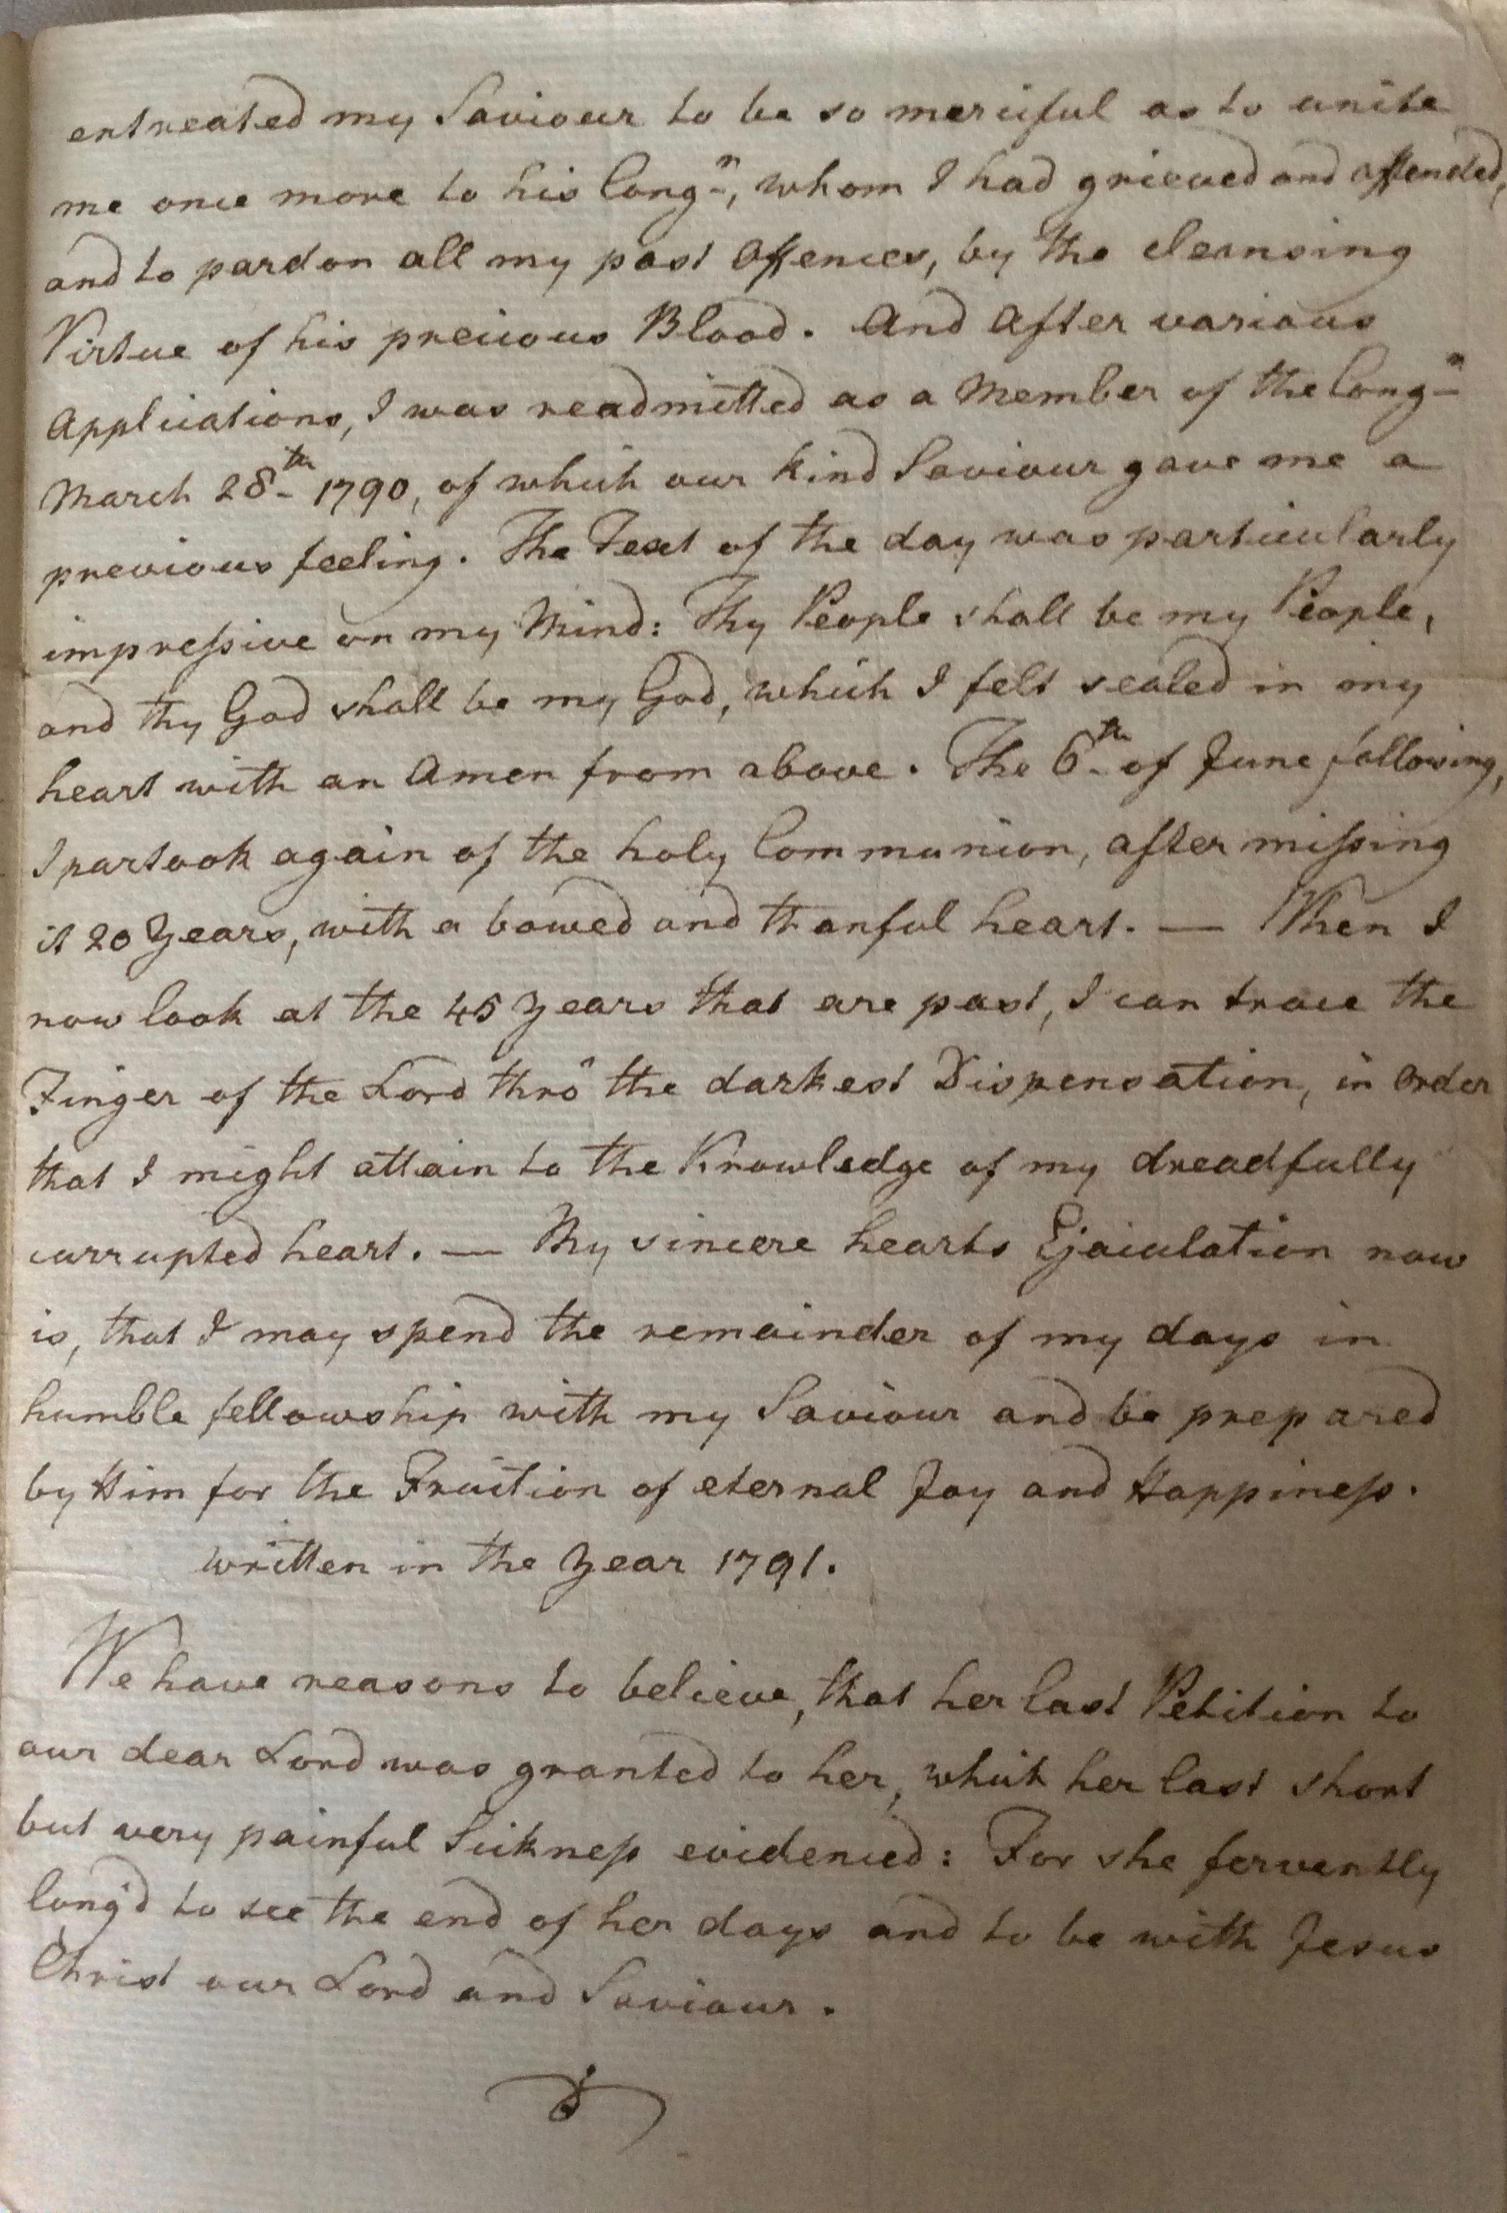 entreated my Saviour to be so merciful as to unite
me once more to his Congn, whom I had grieved and offended,
and to pardon all my past Offences, by the cleansing
Virtue of his precious Blood. And After various
Applications, I was readmitted as a Member of the Congn
March 28th 1790, of which our kind Saviour gave me a
previous feeling. The Text of the day was particularly
impreſsive on my Mind: Thy People shall be my People,
and thy God shall be my God, which I felt sealed in my
heart with an Amen from above. The 6th of June following,
I partook again of the holy Communion, after miſsing
it 20 Years, with a bowed and thanful heart. — When I
now look at the 45 Years that are past, I can trace the
Finger of the Lord thro' the darkest Dispensation, in Order
that I might attain to the Knowledge of my dreadfully
corrupted heart. — My sincere hearts Ejaculation now
is, that I may spend the remainder of my days in
humble fellowship with my Saviour and be prepared
by Him for the Fruition of eternal Joy and Happineſs.
written in the Year 1791.
We have reasons to believe, that her last Petition to
our dear Lord was granted to her, which her last short
but very painful Sickneſs evidenced: For she fervently
long'd to see the end of her days and to be with Jesus
Christ our Lord and Saviour.